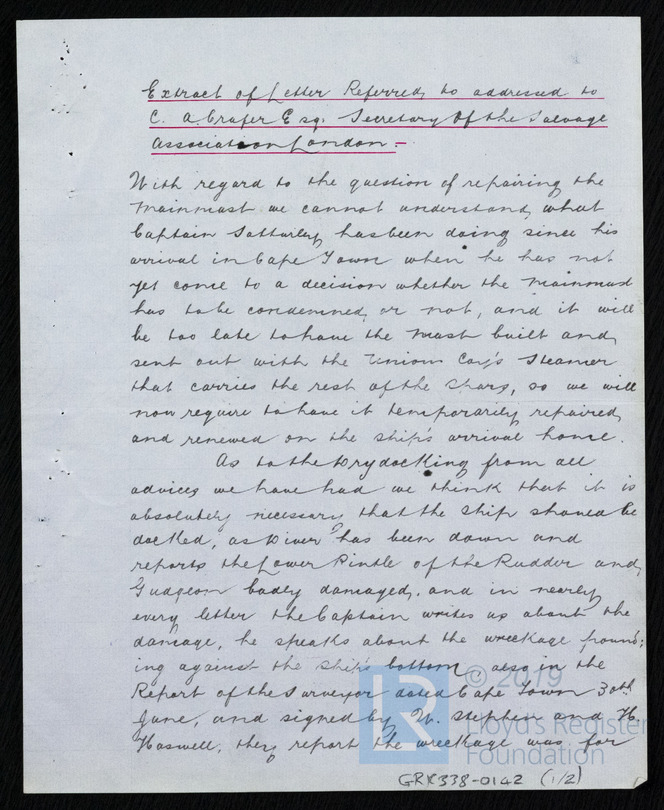 Extract of Letter Referred to addressed to
C. A. Crafer Esq. Secretary of the Salvage
Association London. -
With regard to the question of repairing the
Mainmast we cannot understand what
Captain Satturley has been doing since his
arrival in Cape Town when he has not
yet come to a decision whether the Mainmast
has to be condemned or not, and it will
be too late to have the Mast built and
sent out with the Union Coy's Steamer
that carries the rest of the Spars, so we will
now require to have it temporarily repaired
and renewed on the ship's arrival home.
As to the Drydocking from all
advices we have had we think that it is
absolutely necessary that the ship should be
docked, as Diver has been down and
reports the Lower Pintle of the Rudder and
Gudgeon badly damaged, and in nearly
every letter the Captain writes us about the
damage, he speaks about the wreckage pound:
ing against the ship's bottom, also in the
Report of the Surveyor dated Cape Town 30th
June, and signed by W. Stephen and H.
Haswell, they report the wreckage was for
GRK338-0142 (1/2)
© 2019
LR
Lloyd's Register
Foundation